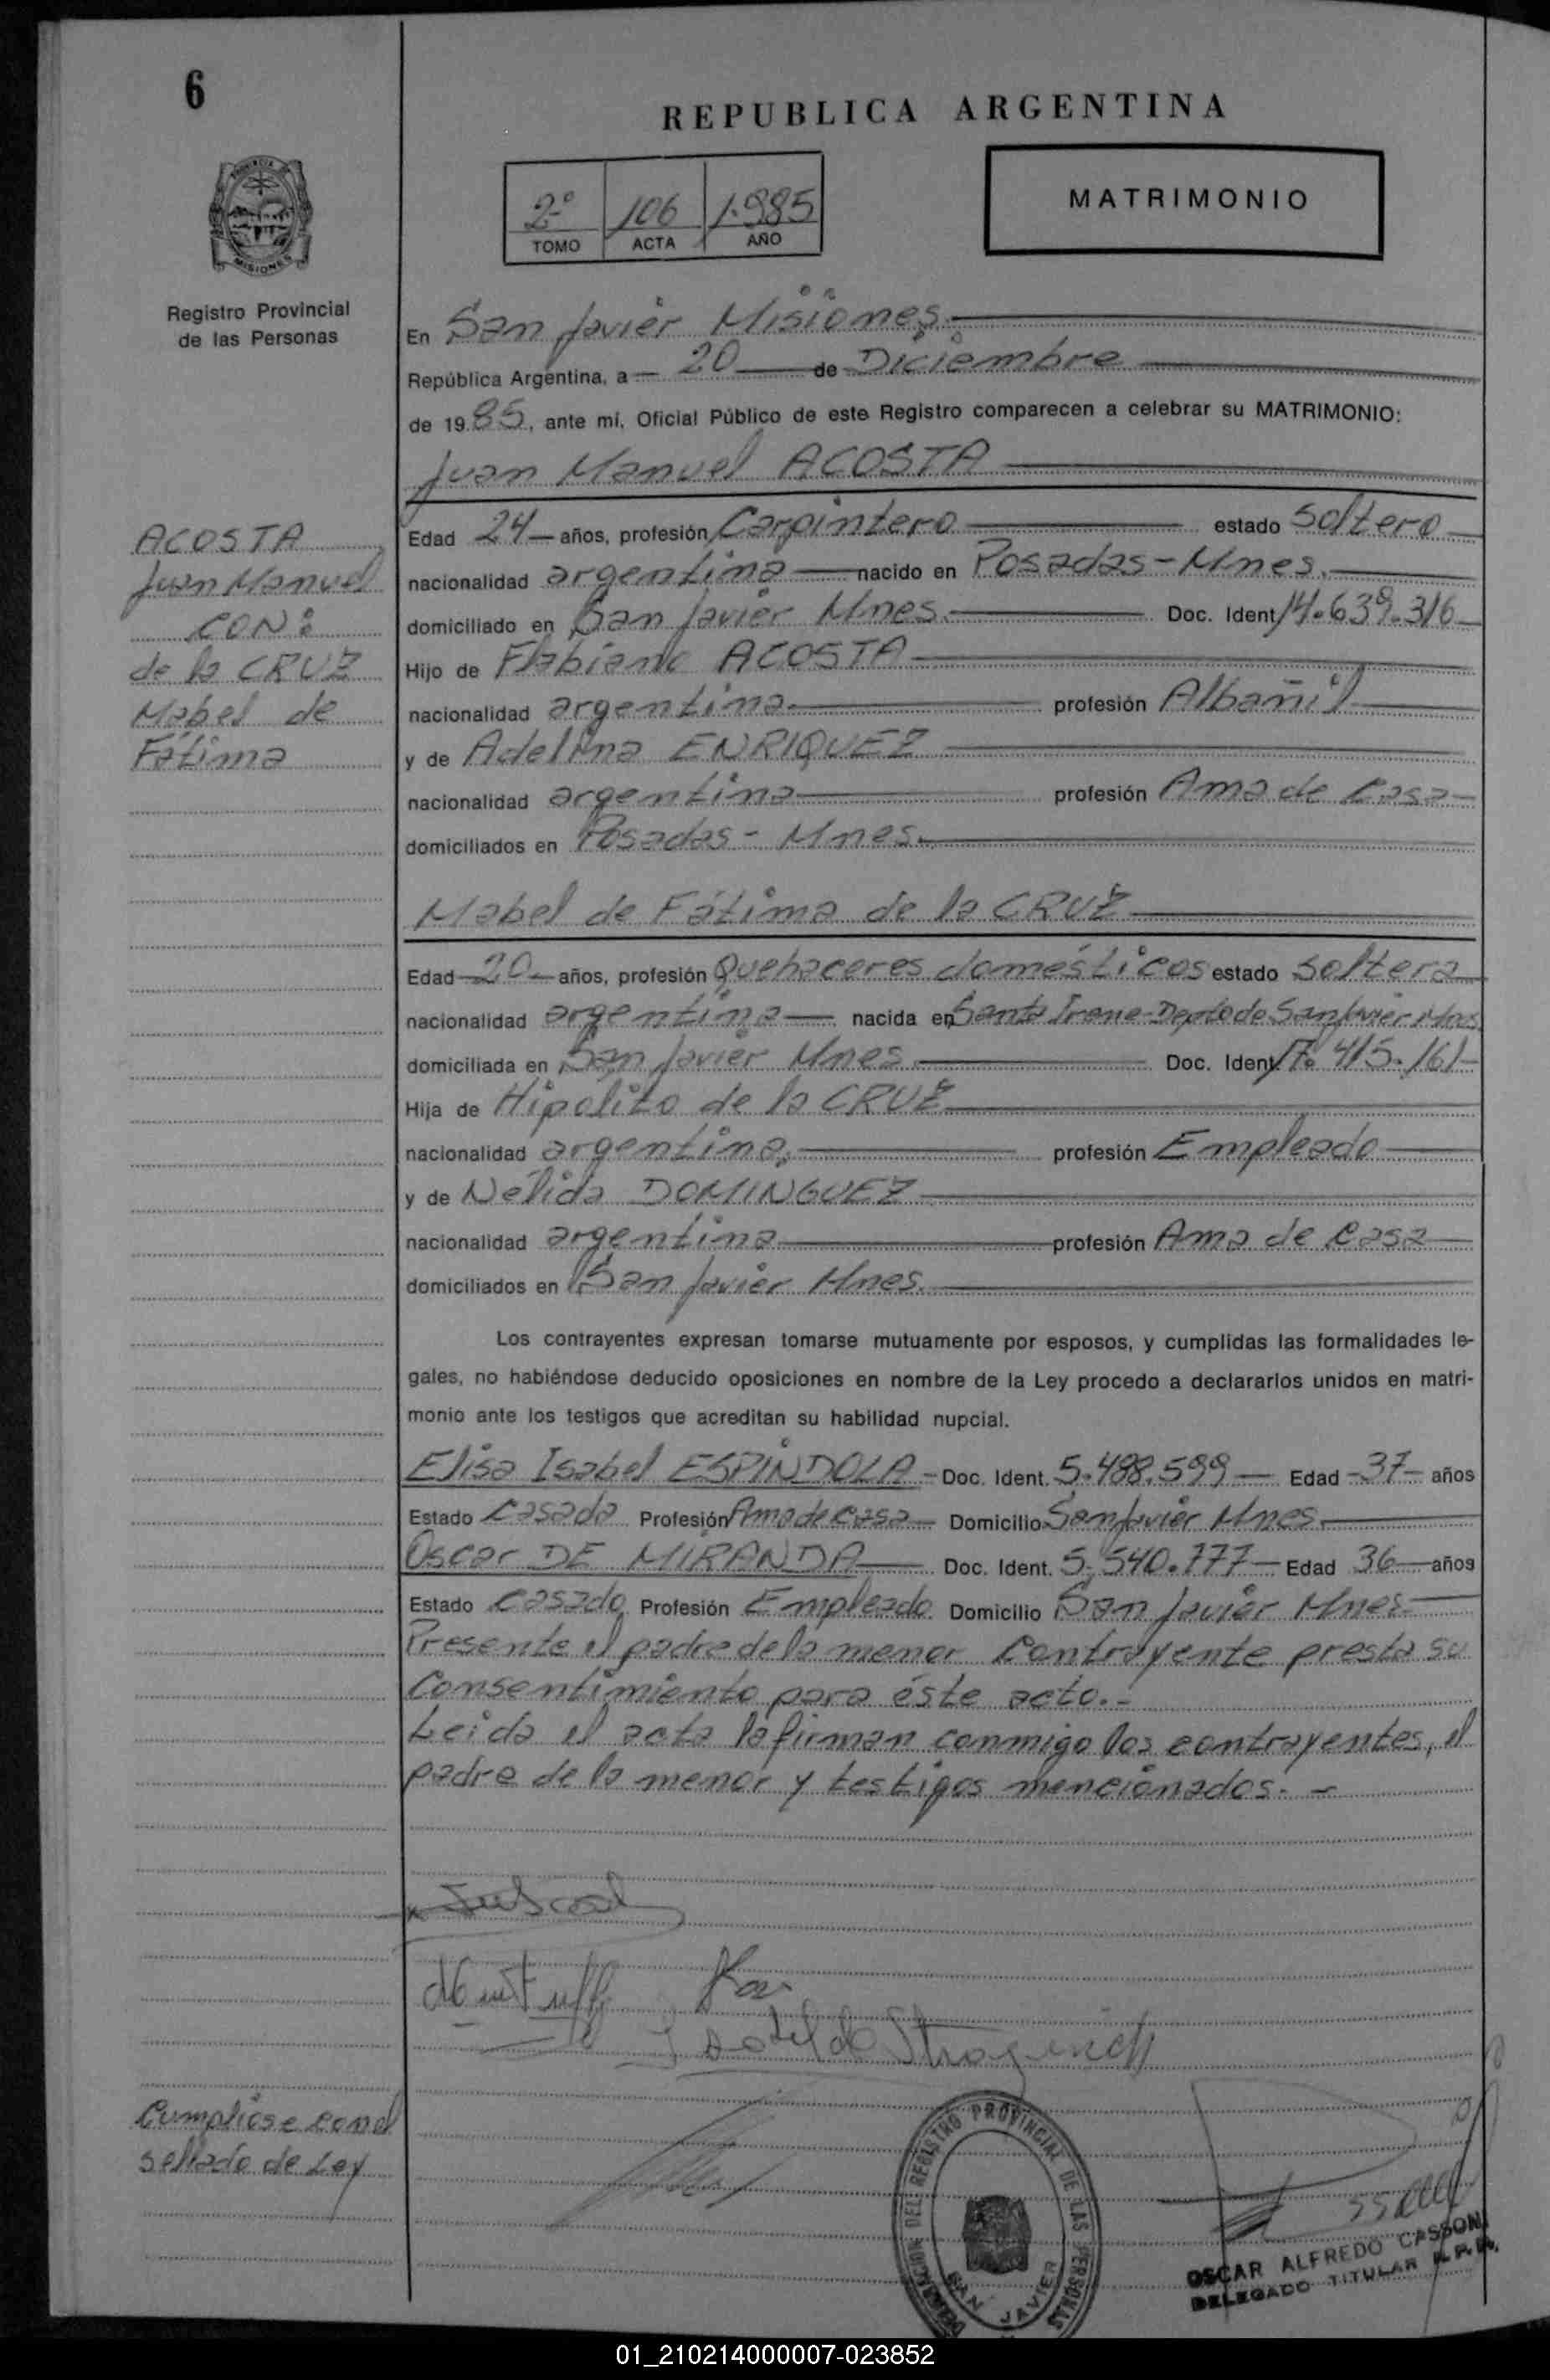 6
REPUBLICA ARGENTINA
2º 106 1.985
TOMO ACTA AÑO
MATRIMONIO
PROVINCIA DE
MISIONES
Registro Provincial
de las Personas
En San Javier Misiones.
República Argentina, a 20 de Diciembre
de 1985, ante mi, Oficial Público de este Registro comparecen a celebrar su MATRIMONIO:
Juan Manuel ACOSTA
ACOSTA
Juan Manuel
CON:
de la CRUZ
Mabel de
Fátima
Edad 24 años, profesión Carpintero estado soltero
nacionalidad argentina nacido en Posadas - Mnes.
domiciliado en San Javier Mnes. Doc. Ident 14.639.316
Hijo de Flabiano ACOSTA
nacionalidad argentina. profesión Albañil
y de Adelina ENRIQUEZ
nacionalidad argentina profesión Ama de casa
domiciliados en Posadas - Mnes.
Mabel de Fátima de la CRUZ
Edad 20 años, profesión Quehaceres domésticos estado soltera
nacionalidad argentina nacida en Santa Irene - Depto de San Javier Mnes
domiciliada en San Javier Mnes. Doc. Ident 17.415.161
Hija de Hipolito de la CRUZ
nacionalidad argentina, profesión Empleado
y de Nélida DOMINGUEZ
nacionalidad argentina profesión Ama de casa
domiciliados en San Javier Mnes.
Los contrayentes expresan tomarse mutuamente por esposos, y cumplidas las formalidades le-
gales, no habiéndose deducido oposiciones en nombre de la Ley procedo a declararlos unidos en matri-
monio ante los testigos que acreditan su habilidad nupcial.
Elisa Isabel ESPINDOLA - Doc. Ident. 5.488.599 Edad 37 años
Estado casada Profesión Ama de casa Domicilio San Javier Mnes.
Oscar DE MIRANDA Doc. Ident. 5.540.777 Edad 36 años
Estado casado Profesión Empleado Domicilio San Javier Mnes.
Presente el padre de la menor contrayente presta su
consentimiento para éste acto.-
Leida el acta la firman conmigo los contrayentes, el
padre de la menor y testigos mencionados. -
Cumpliose con el
sellado de Ley
DELEGACION DEL REGISTRO PROVINCIAL DE LAS PERSONAS
SAN JAVIER
OSCAR ALFREDO CASSONI
DELEGADO TITULAR R.P.P.
01_210214000007-023852